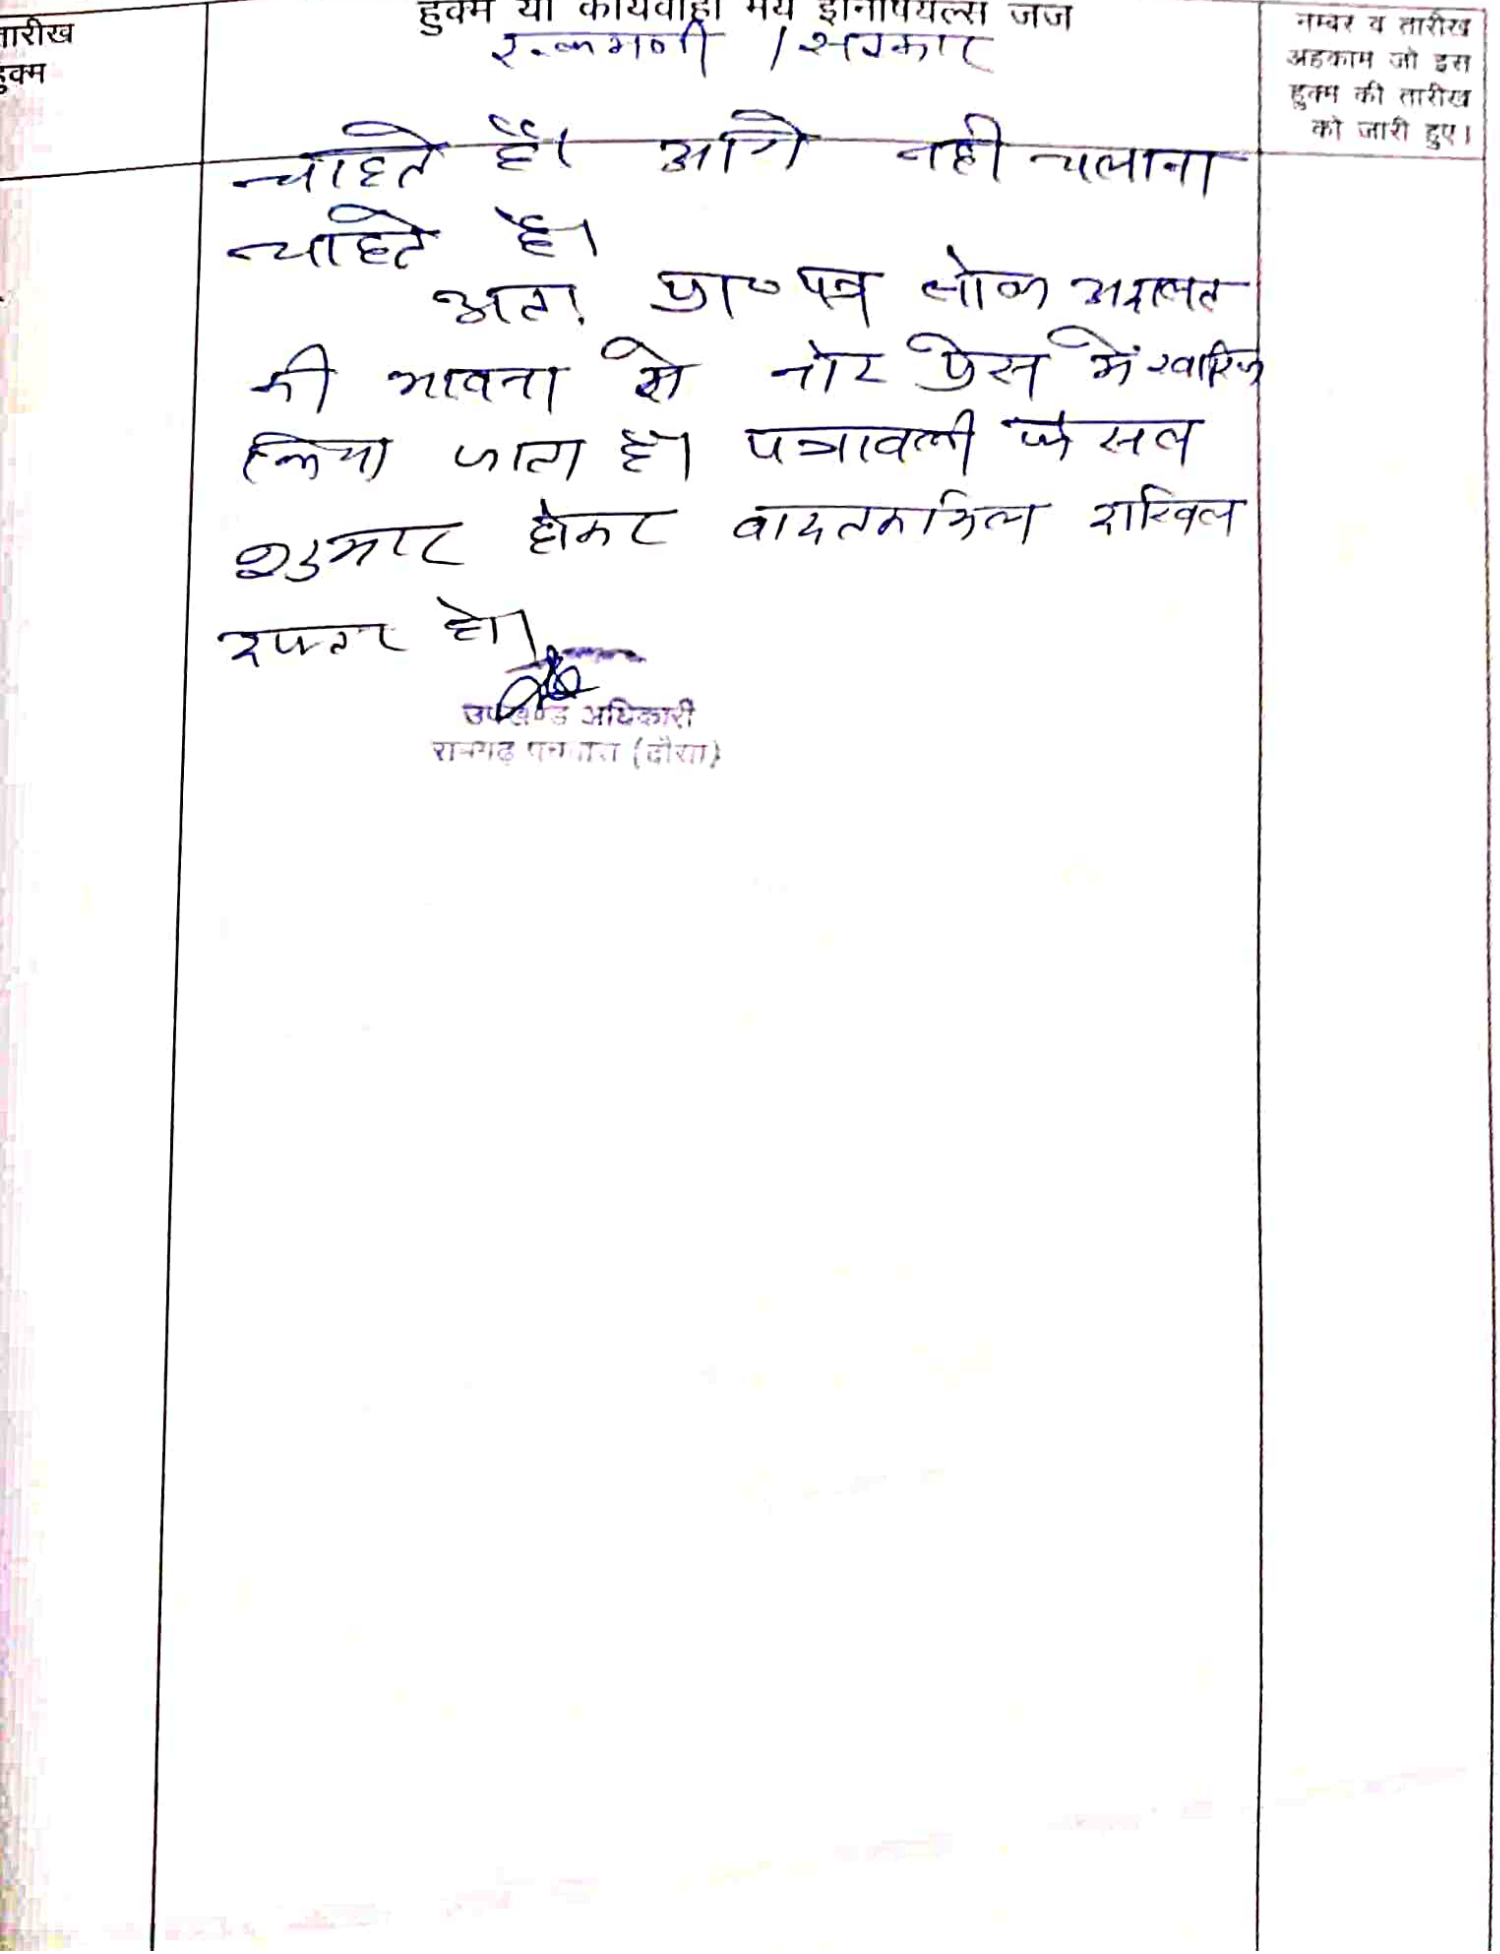 तारीख
हुक्म
हुक्म या कार्यवाही मय इनीशियल्स जज
नम्बर व तारीख
अहकाम जो इस
हुक्म की तारीख
को जारी हुए।
रूकमणी / सरकार
चाहते हैं। आगे नही चलाना
चाहते है।
अतः प्रा० पत्र लोक अदालत
की भावना से नोट प्रेस में खारिज
किया जाता है। पत्रावली फैसल
शुमार होकर बादतकमिल दाखिल
दफ्तर हो।
उपखण्ड अधिकारी
रामगढ़ पचवारा (दौसा)